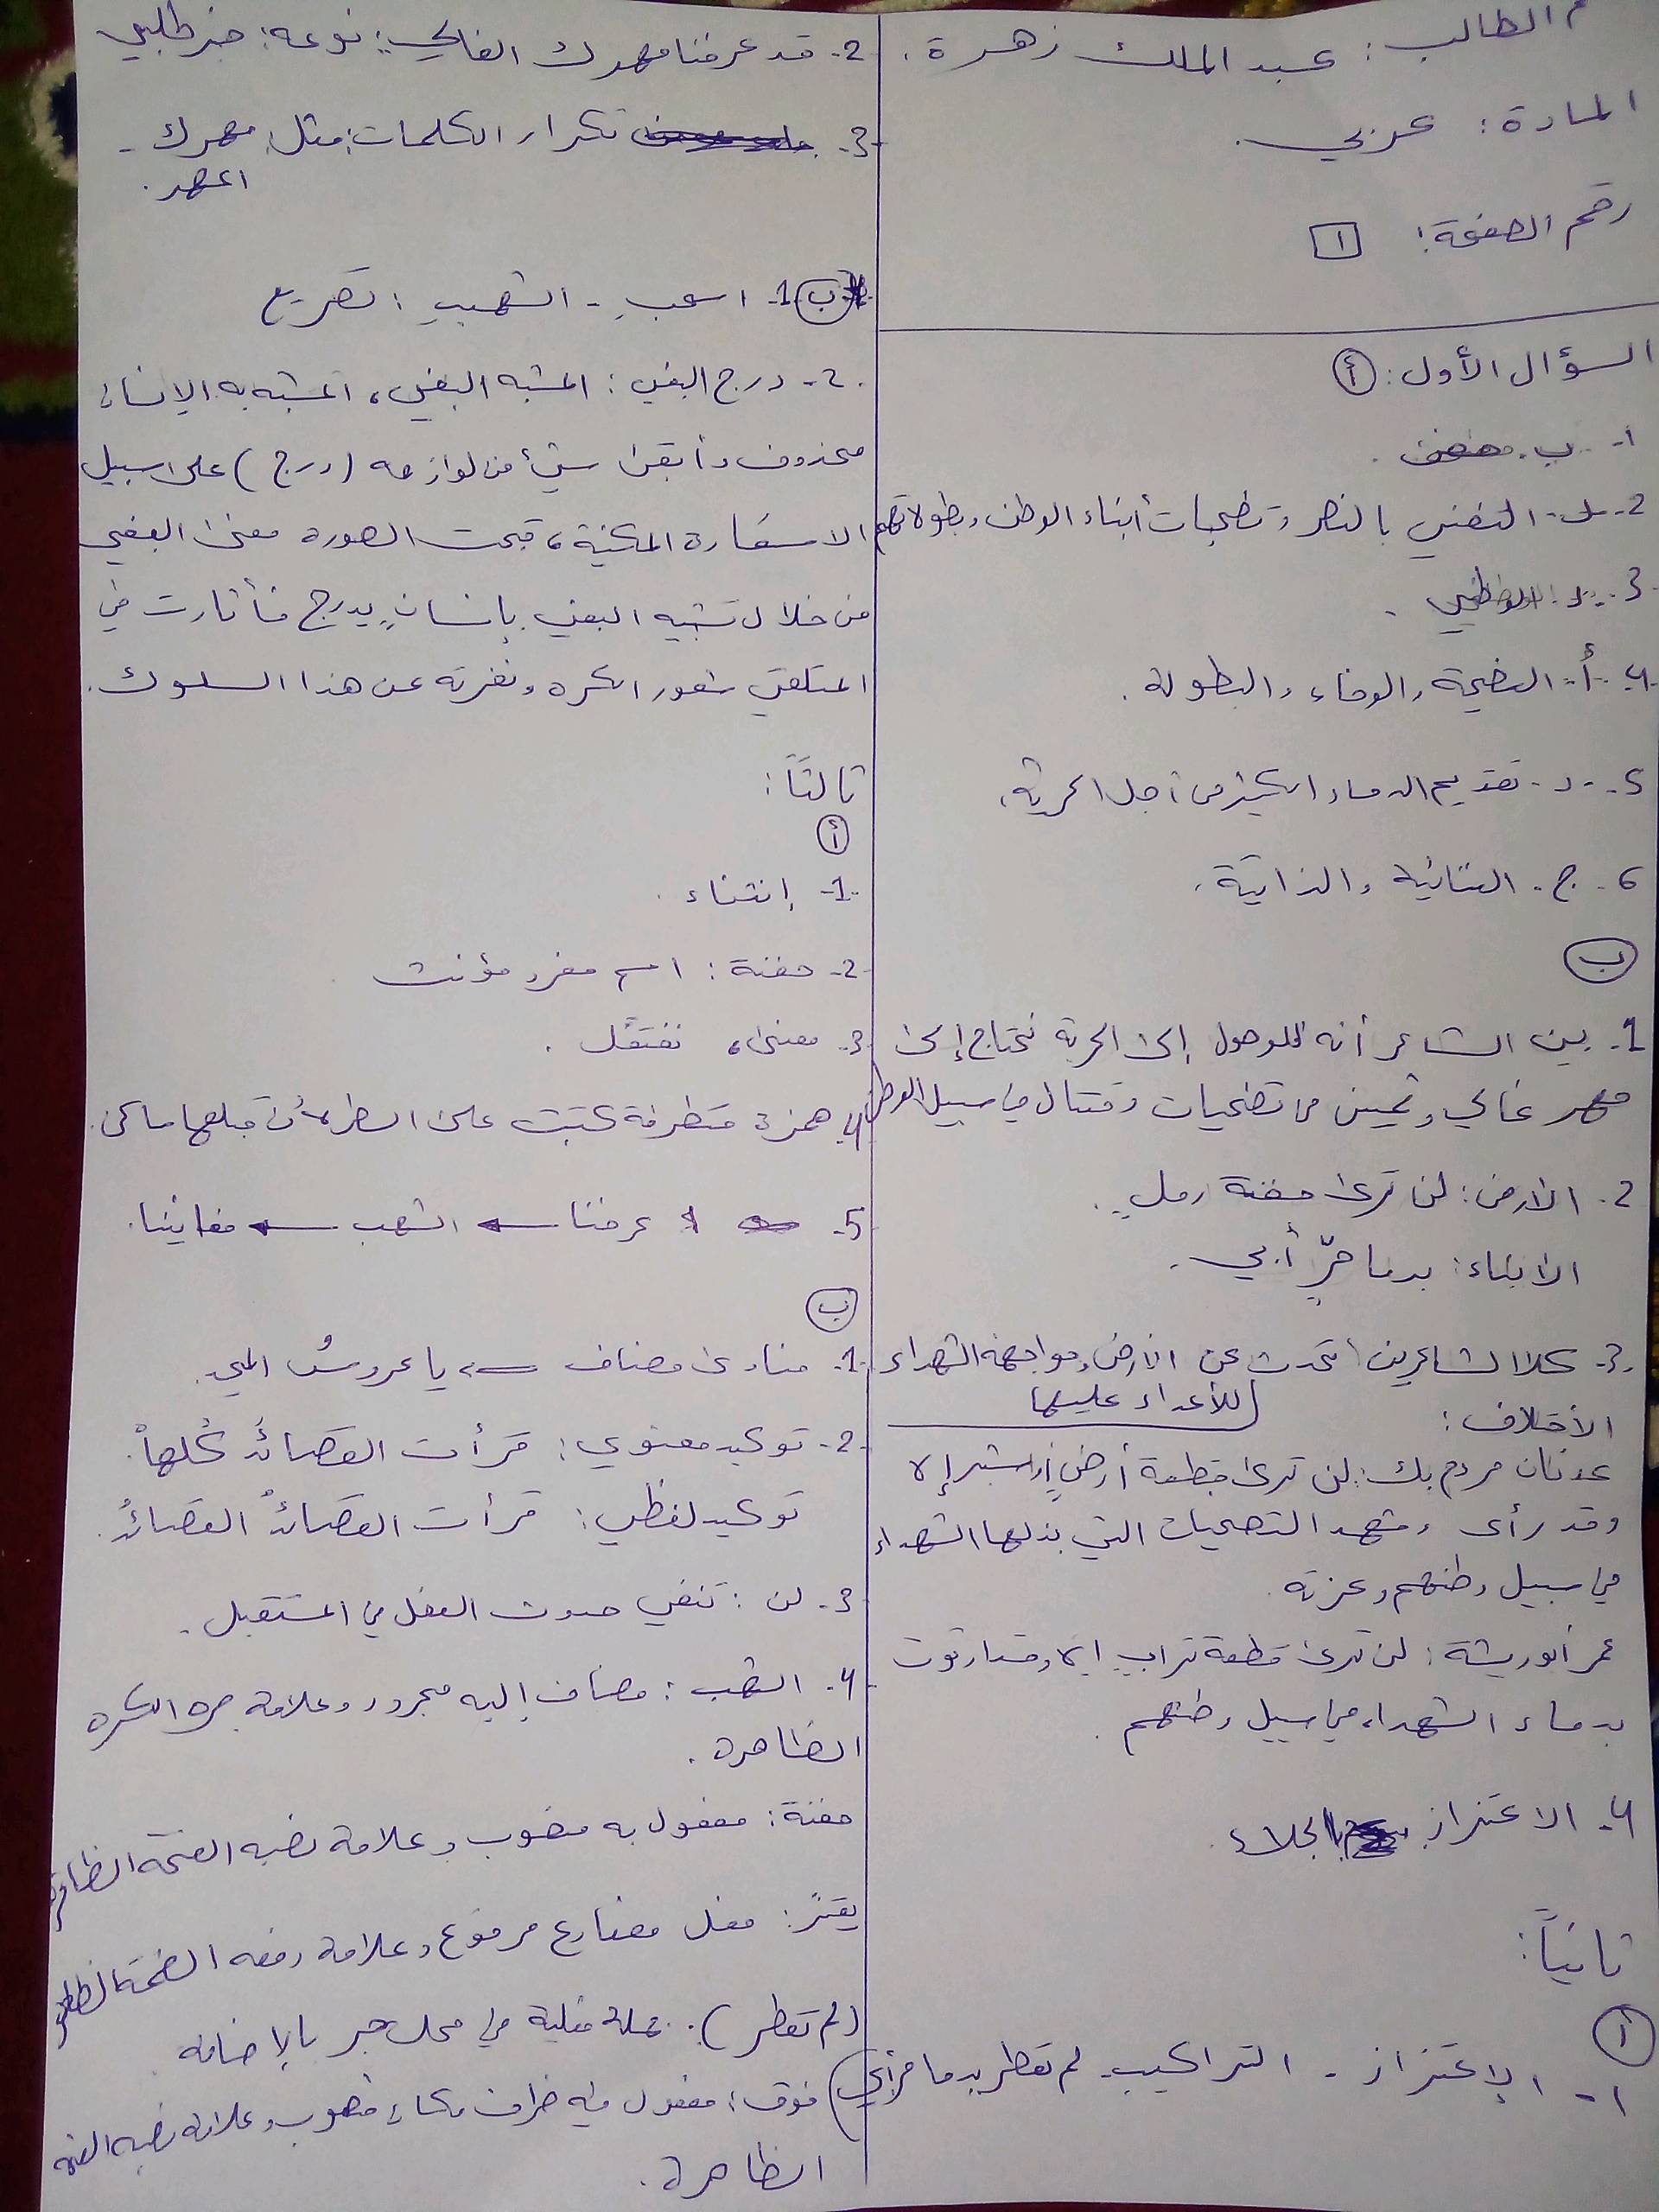 م الطالب: عبد الملك زهرة.
المادة: عربي.
رقم الصفحة: 1
السؤال الأول: أ
1- ب.
2- د- التغني بالنصر وتضحيات أبناء الوطن وبطولاتهم
3- د:
4- أ: التضحية والوفاء والبطولة.
5- د- تقديم الدماء الكثير من أجل الحرية.
6- ج. الغنائية والذاتية.
ب
1- بين الشاعر أنه للوصول إلى الحرية نحتاج إلى
مهر غالي وثمين من تضحيات وقتال في سبيل الوطن
2- الأرض: لن ترى حفنة رملٍ.
الأبناء: بدما حرٍّ أبي.
3- كلا الشاعرين تحدث عن الأرض ومواجهة الشهداء
للأعداء عليها
الأختلاف:
عدنان مردم بك: لن ترى قطعة أرضٍ أو شبر إلا
وقد رأى وشهد التضحيات التي بذلها الشهداء
في سبيل وطنهم وعزته.
عمر أبو ريشة: لن ترى قطعة ترابٍ إلا وقد ارتوت
بدماء الشهداء في سبيل وطنهم.
4- الاعتزاز بالجلاء.
ثانياً:
أ
1- الإعتزاز - التراكيب - لم تعطر بدما حر أبي
2- قد عرفنا مهرك الغالي: نوعه: خبر طلبي
3- تكرار الكلمات: مثل: مهرك -
المهر.
ب 1- اسحبِ - الشهبِ: تصريع
2- درج البغي: المشبه البغي، المشبه به الإنسان
محذوف وأبقى شيء من لوازمه (درج) على سبيل
الاستعارة المكنية، قبحت الصورة معنى البغي
من خلال تشبيه البغي بإنسانٍ يدرج فأثارت في
المتلقي شعور الكره ونفرته عن هذا السلوك.
ثالثاً:
أ
1- إنتشاء.
2- حفنة: اسم مفرد مؤنث
3- معنى، نفتعل.
4- همزة متطرفة كتبت على السطر لأن قبلها ساكن.
5- عرفنا ← الشهب ← مغانينا.
ب
1- منادى مضاف ← يا عروسُ المجد.
2- توكيد معنوي: قرأت القصائدُ كُلهاْ.
توكيد لفظي: قرأت القصائدُ القصائدُ.
3- لن: تنفي حدوث الفعل في المستقبل.
4- الشهب: مضاف إليه مجرور وعلامة جره الكسرة
الظاهرة.
حفنة: مفعول به منصوب وعلامة نصبه الفتحة الظاهرة
فعل مضارع مرفوع وعلامة رفعه الضمة الظاهرة
(لم تعطر). جملة فعلية في محل جر بالإضافة
فوق: مفعول فيه ظرف مكان منصوب وعلامة نصبه الفتحة
الظاهرة.